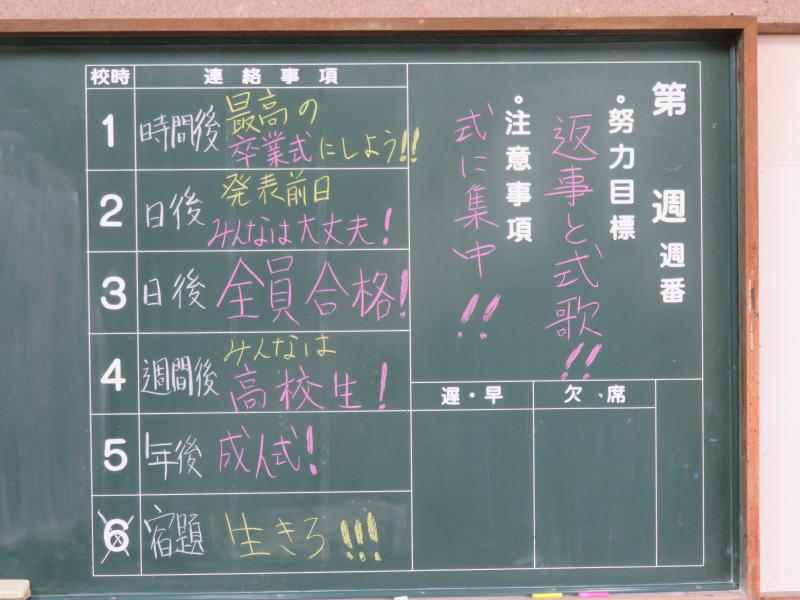 第　週 週番
。努力目標
返事と式歌!!
。注意事項
式に集中!!
校時 連絡事項
1 時間後 最高の
卒業式にしよう!!
2 日後 発表前日
みんなは大丈夫!
3 日後 全員合格!
4 週間後 みんなは
高校生!
5 年後 成人式!
6 宿題 生きろ!!!
遅・早 欠・席